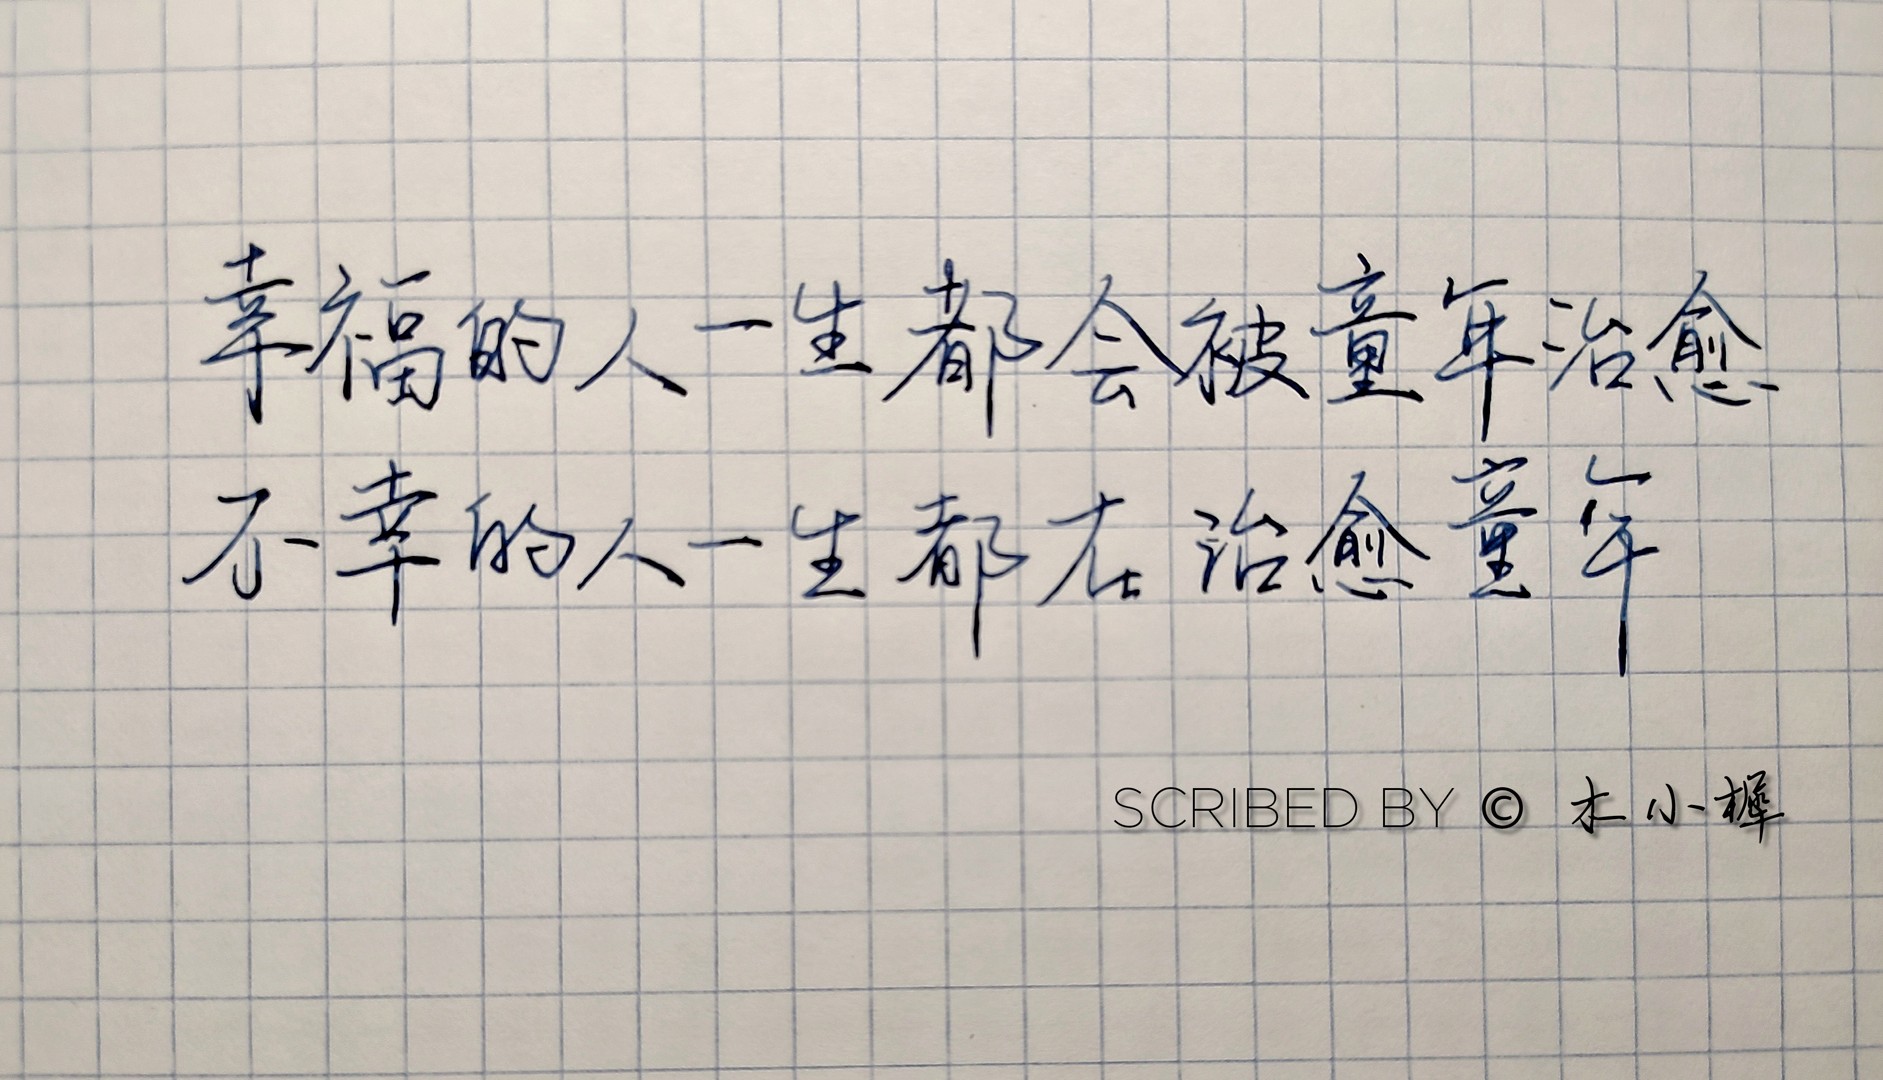 幸福的人一生都会被童年治愈
不幸的人一生都在治愈童年
SCRIBED BY © 木小樨